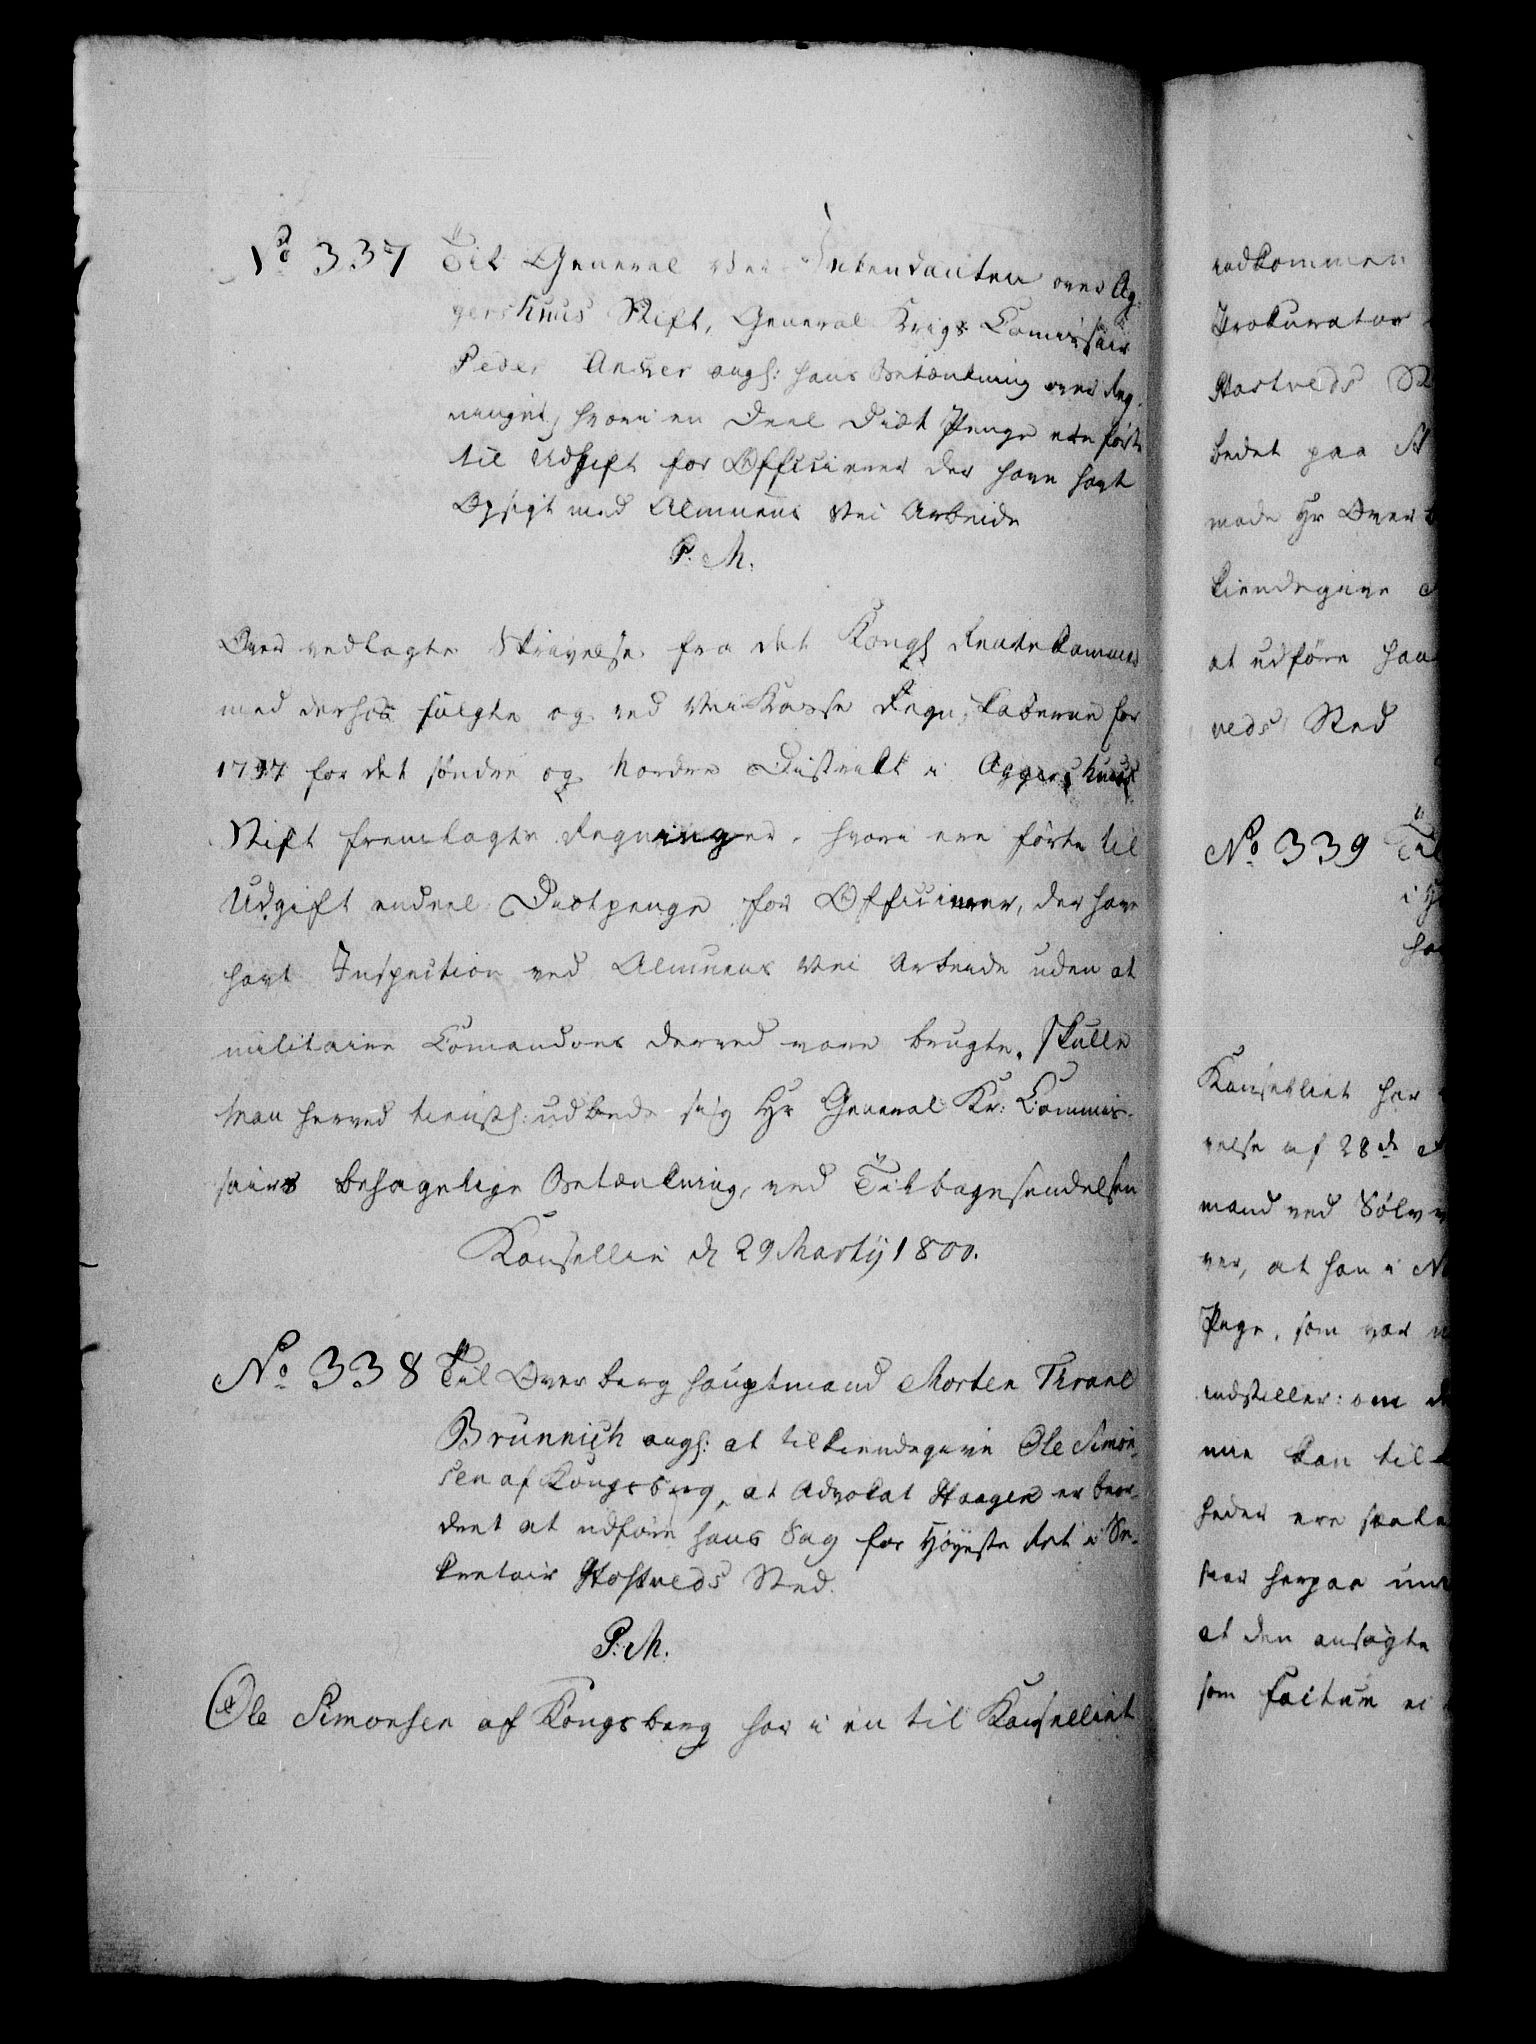 No 337 Til General Vei-Intendanten over Ag-
gershuus Stift, General Krigs Commissair
Peder Ancker angs: hans Betænkning over Reg-
ninger, hvori en Deel Diæt Penge ere førte
til Udgift for Officierer der have havt
Opsigt med Almuens Vei Arbeide
P. M.
Over vedlagte Skrivelse fra det Kongl Rentekammer
med derhos fulgte og ved Vei Kasse Regnskaberne for
1797 for det søndre og Nordre District i Aggershuus
Stift fremlagte Regninger, hvori ere førte til
Udgift endeel Diætpenge for Officierer, der have
havt Inspection ved Almuens Vei Arbeide uden at
militaire Comandoer derved vare brugte, skulle
Man herved tienstl: udbede sig Hr General Kr: Commis-
sairs behagelige Betænkning, ved Tilbagesendelsen
Kanselliet d 29 Martij 1800.
No 338 Til Over berg hauptmand Morten Thrane
Brünnich angs: at tilkiendegive Ole Simon-
sen af Kongsberg, at Advokat Haagen er beor-
dret at udføre hans Sag for Høyeste Ret i Se-
kretair Hostveds Sted.
P. M.
Ole Simonsen af Kongsberg har i en til Kanselliet
vedkommen
Prokurator
Hostveds
bedet paa
mode Hr Over
kiendegive
at udføre han
veds Sted
No 339 Til
i
ha
Kanselliet har
velse af 28de
mand ved Sølv
ver, at han i
Page, som var
indstiller: om
kan til
heder ere
herpaa
at den ansøgte
som Factum ei